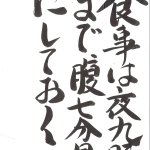 食事は夜九時
まで腹七分目
にしておく